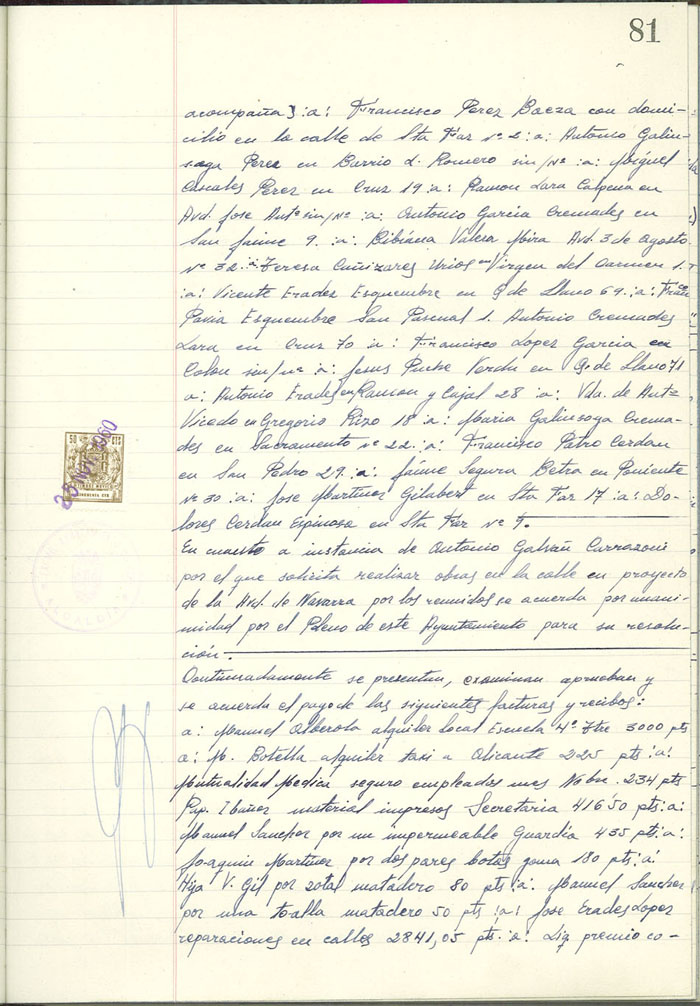 81
acompaña) :a: Francisco Perez Baeza con domi-
cilio en la calle de Sta Faz nº 2 :a: Antonio Galin-
soga Perez en Barrio J. Romero sin/nº :a: Miguel
Canales Perez en Cruz 19 :a: Ramon Lara Calpena en
Avd. Jose Antº sin/nº :a: Antonio Garcia Cremades en
San Jaime 9. :a: Bibiana Valera Mira Avd. 3 de Agosto
nº 32. :a: Teresa Cañizares Urios en Virgen del Carmen 1.
:a: Vicente Erades Esquembre en Q. de Llano 69. :a: Frnco
Pavia Esquembre San Pascual 1. Antonio Cremades
Lara en Cruz 70 :a: Francisco Lopez Garcia en
Colon sin/nº :a: Jesus Verdu en Q. de Llano 71
:a: Antonio Erades en Ramon y Cajal 28 :a: Vda. de Antº
Vicedo en Gregorio Rizo 18 :a: Maria Galinsoga Crema-
des en Sacramento nº 22. :a: Francisco Patro Cerdan
en San Pedro 29. :a: Jaime Segura Betra en Poniente
nº 30 :a: Jose Martinez Gilabert en Sta Faz 17 :a: Do-
lores Cerdan Espinosa en Sta Faz nº 9.
En cuanto a instancia de Antonio Galvañ Carrazoni
por el que solicita realizar obras en la calle en proyecto
de la Avd. de Navarra por los reunidos se acuerda por unani-
midad por el Pleno de este Ayuntamiento para su resolu-
ción.
Continuadamente se presentan, examinan aprueban y
se acuerda el pago de las siguientes facturas y recibos:
a: Manuel Alberola alquiler local Escuela 4º Ttre 3000 pts
a: M. Botella alquiler taxi a Alicante 225 pts :a:
Mutualidad Medica seguro empleados mes Nobre. 234 pts
Pap. Ibañez material impresos Secretaria 416'50 pts :a:
Manuel Sanchez por un impermeable Guardia 435 pts :a:
Joaquin Martinez por dos pares botas goma 180 pts :a:
Hija V. Gil por zotal matadero 80 pts :a: Manuel Sanchez
por una toalla matadero 50 pts :a: Jose Erades Lopez
reparaciones en calles 2841,05 pts. :a: Liq. premio co-
50 CTS
25 NOV. 1960
CINCUENTA CTS
ALCALDIA